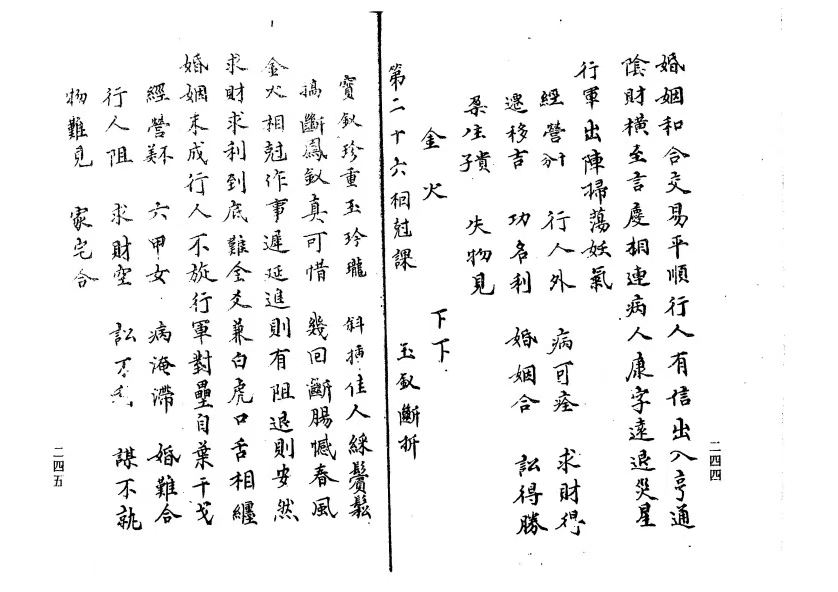 婚姻和合交易平順行人有信出入亨通
陰財橫至言慶相連病人康字遠退災星
行軍出陣掃蕩妖氣
經營 行人外 病可痊 求財得
遷移吉 功名利 婚姻合 訟得勝
失物見
二四四
金火 下下
第二十六相尅課 玉釵斷折
寶釵珍重玉玲瓏 斜插佳人綵鬢鬆
搞斷鳳釵真可惜 幾回斷腸憾春風
金火相尅作事遲延進則有阻退則安然
求財求利到底難全爻兼白虎口舌相纏
婚姻未成行人不旋行軍對壘自葉干戈
經營 六甲女 病淹滯 婚難合
行人阻 求財空 訟不 謀不就
物難見 家宅合
二四五